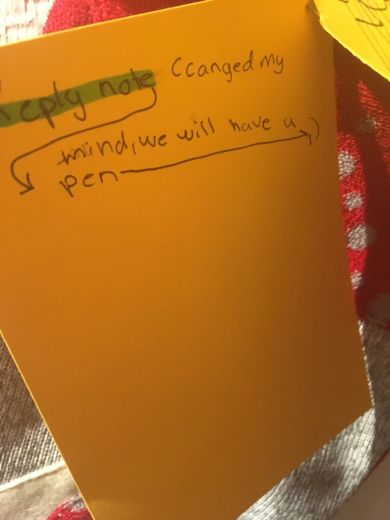 Reply note (canged my
mind, we will have a )
pen